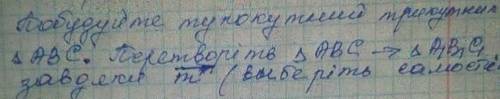 Побудуйте тупокутний трикутник
△ABC. Перетворіть △ABC → △A₁B₁C₁
завдяки m⃗ (выберіть самості